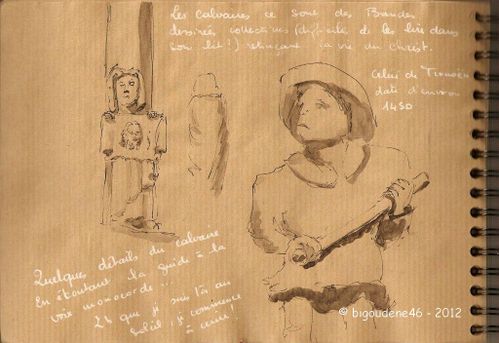 Les Calvaires ce sont des Bandes
dessinées collectives (difficile de les lire dans
son lit !) retraçant la vie du Christ.
Celui de Tronoën
date d'environ
1450
Quelques détails du calvaire
En écoutant la guide à la
voix monocorde ...
2h que je suis là au
soleil, je commence
à cuire !
© bigoudene46 - 2012